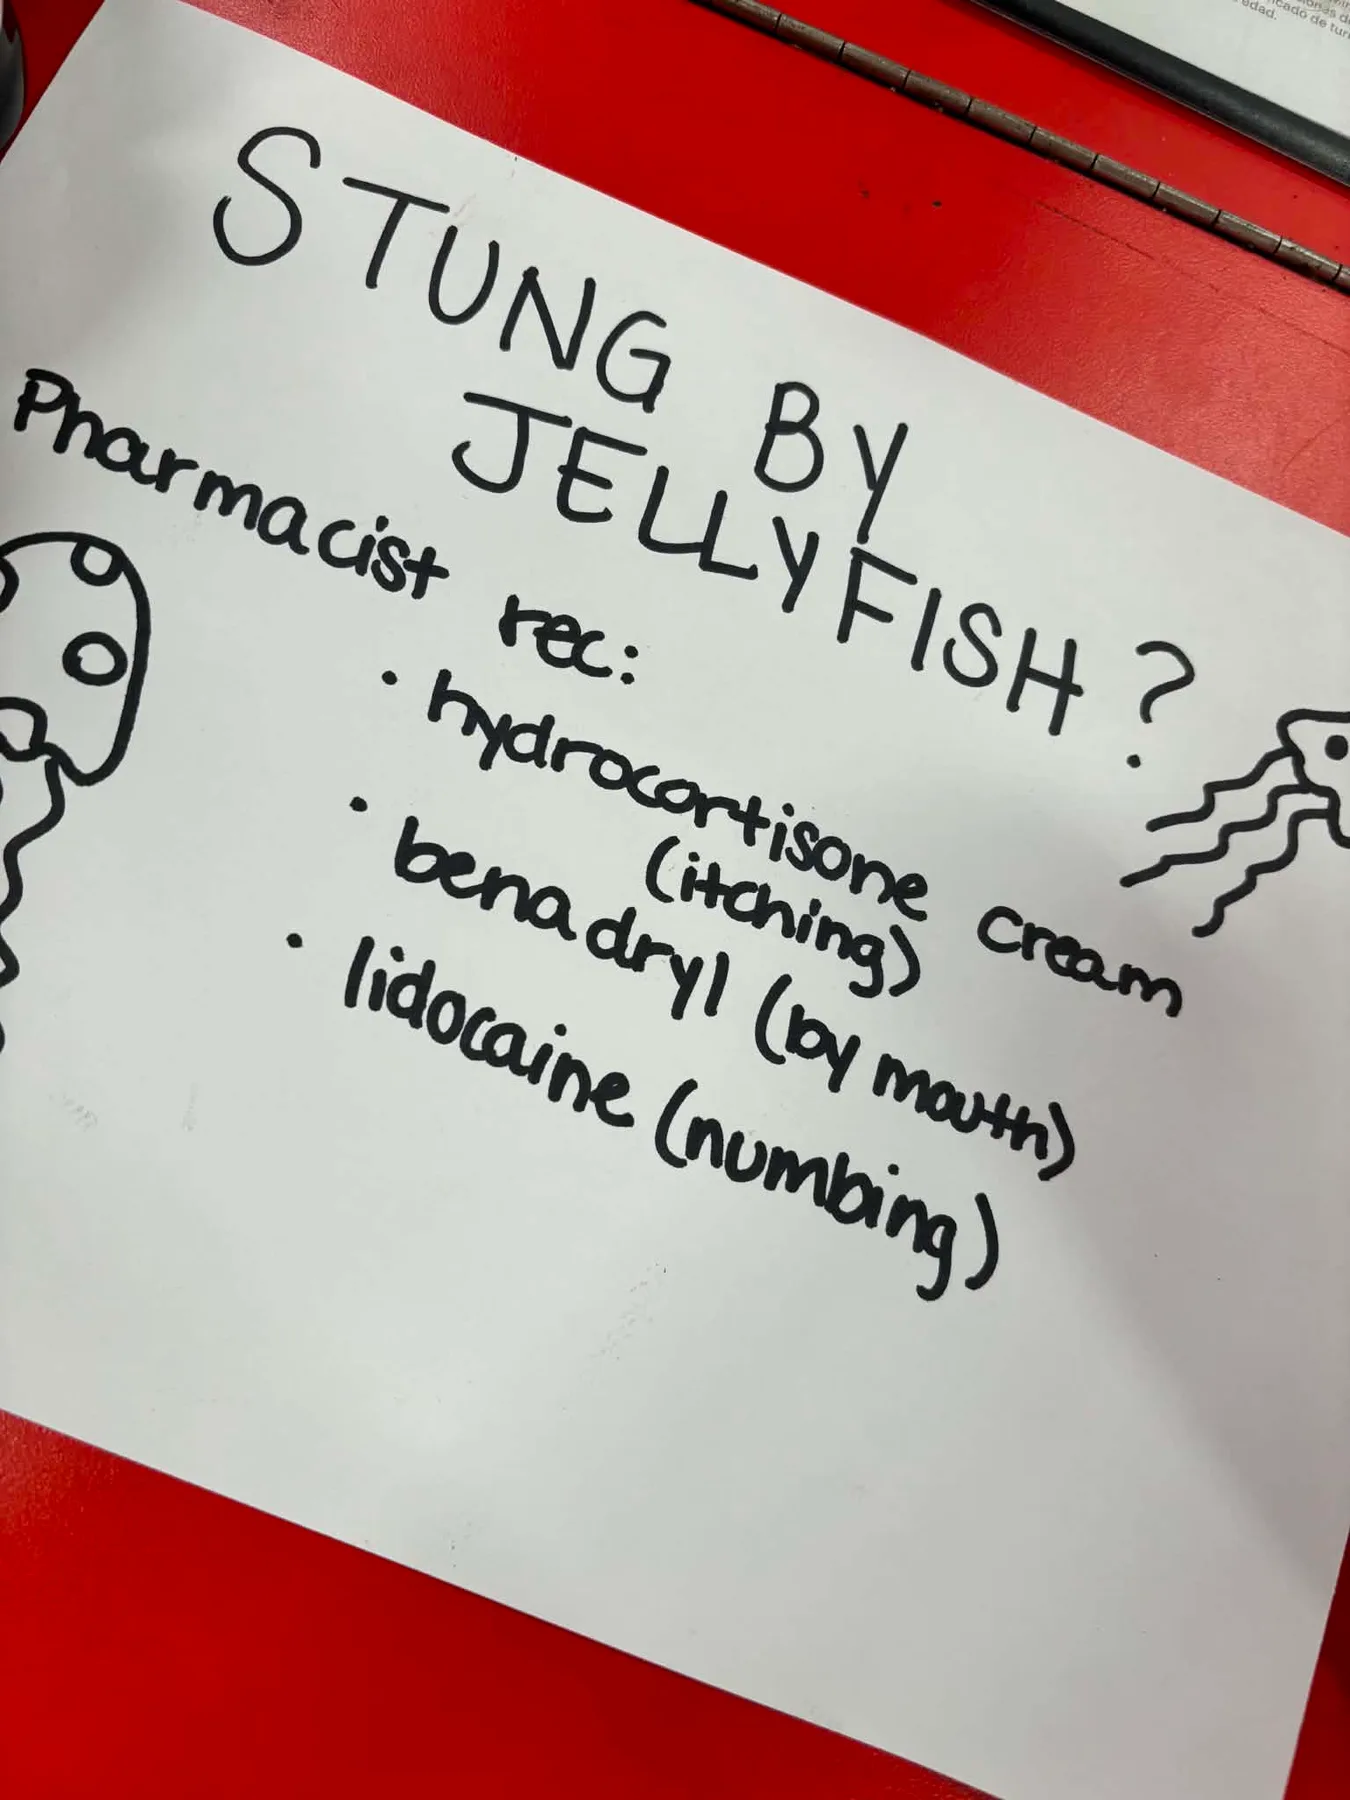 STUNG BY
JELLYFISH?
Pharmacist rec:
• hydrocortisone cream
(itching)
• benadryl (by mouth)
• lidocaine (numbing)
edad.